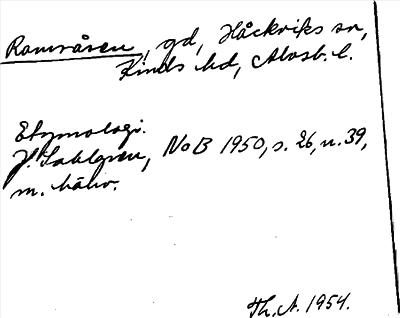 Ramvåsen, gd, Håckviks sn,
Kinds hd, Älvsb. l.
Etymologi.
J. Sahlgren, NoB 1950, s. 26, n. 39,
m. hänv.
Th. A. 1954.